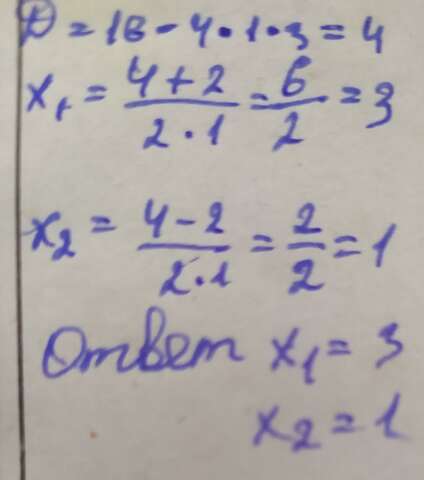 D = 16 - 4 · 1 · 3 = 4
x₁ = (4 + 2)/(2 · 1) = 6/2 = 3
x₂ = (4 - 2)/(2 · 1) = 2/2 = 1
Ответ x₁ = 3
x₂ = 1